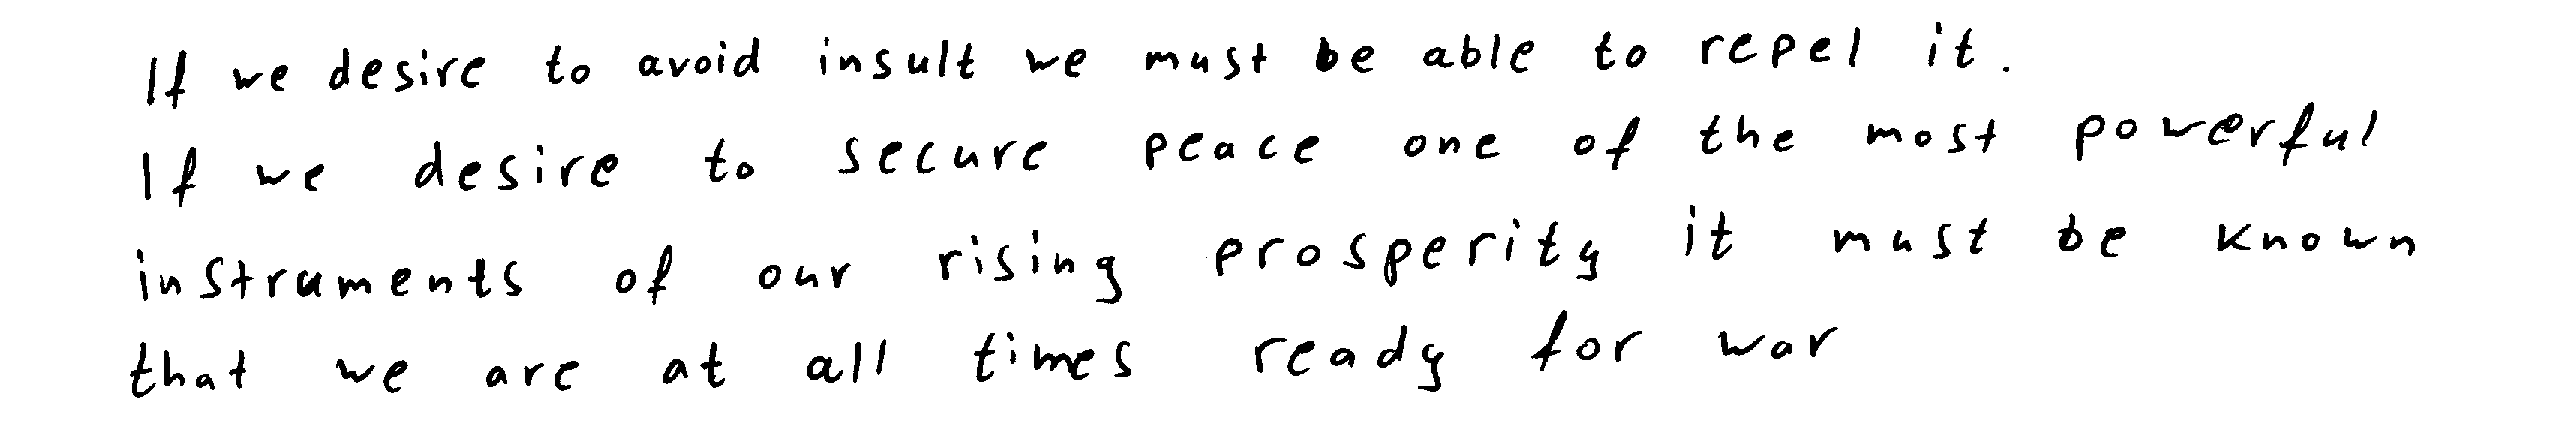 If we desire to avoid insult we must be able to repel it.
If we desire to secure peace one of the most powerful
instruments of our rising prosperity it must be known
that we are at all times ready for war